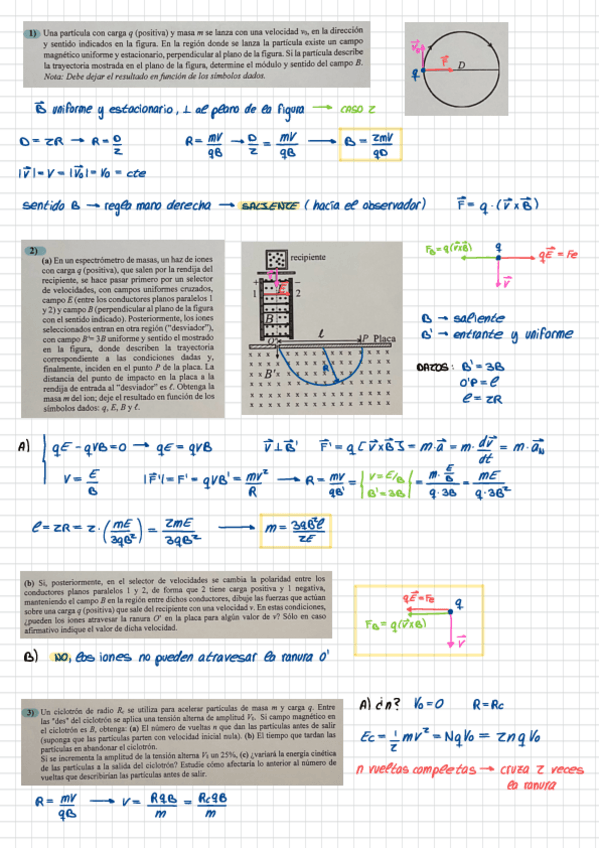 1) Una partícula con carga q (positiva) y masa m se lanza con una velocidad v₀, en la dirección
y sentido indicados en la figura. En la región donde se lanza la partícula existe un campo
magnético uniforme y estacionario, perpendicular al plano de la figura. Si la partícula describe
la trayectoria mostrada en el plano de la figura, determine el módulo y sentido del campo B.
Nota: Debe dejar el resultado en función de los símbolos dados.
V₀
F
D
q
B uniforme y estacionario, ⊥ al plano de la figura → CASO 2
D = 2R → R = D/2 R = mV/qB → D/2 = mV/qB → B = 2mV/qD
|V| = V = |V₀| = V₀ = cte
sentido B → regla mano derecha → SALIENTE (hacia el observador) F = q · (V x B)
2)
(a) En un espectrómetro de masas, un haz de iones
con carga q (positiva), que salen por la rendija del
recipiente, se hace pasar primero por un selector
de velocidades, con campos uniformes cruzados,
campo E (entre los conductores planos paralelos 1
y 2) y campo B (perpendicular al plano de la figura
con el sentido indicado). Posteriormente, los iones
seleccionados entran en otra región ("desviador"),
con campo B'= 3B uniforme y sentido el mostrado
en la figura, donde describen la trayectoria
correspondiente a las condiciones dadas y,
finalmente, inciden en el punto P de la placa. La
distancia del punto de impacto en la placa a la
rendija de entrada al "desviador" es ℓ. Obtenga la
masa m del ion; deje el resultado en función de los
símbolos dados: q, E, B y ℓ.
recipiente
+
-
1
E
2
B
O'
ℓ
P Placa
B'
R
F_B = q(VxB) q qE = Fe
V
B → saliente
B' → entrante y uniforme
DATOS: B' = 3B
O'P = ℓ
ℓ = 2R
A) qE - qVB = 0 → qE = qVB V ⊥ B' F' = q[VxB] = m·a = m·dV/dt = m·a_N
V = E/B |F'| = F' = qVB' = mV²/R → R = mV/qB' = |V = E/B B' = 3B| = m·E/B / q·3B = mE / q·3B²
ℓ = 2R = 2·(mE/3qB²) = 2mE/3qB² → m = 3qB²ℓ/2E
(b) Si, posteriormente, en el selector de velocidades se cambia la polaridad entre los
conductores planos paralelos 1 y 2, de forma que 2 tiene carga positiva y 1 negativa,
manteniendo el campo B en la región entre dichos conductores, dibuje las fuerzas que actúan
sobre una carga q (positiva) que sale del recipiente con una velocidad v. En estas condiciones,
¿pueden los iones atravesar la ranura O' en la placa para algún valor de v? Sólo en caso
afirmativo indique el valor de dicha velocidad.
qE = Fe q
F_B = q(VxB)
V
B) NO, los iones no pueden atravesar la ranura O'
3) Un ciclotrón de radio Rc se utiliza para acelerar partículas de masa m y carga q. Entre
las "des" del ciclotrón se aplica una tensión alterna de amplitud V₀. Si campo magnético en
el ciclotrón es B, obtenga: (a) El número de vueltas n que dan las partículas antes de salir
(suponga que las partículas parten con velocidad inicial nula). (b) El tiempo que tardan las
partículas en abandonar el ciclotrón.
Si se incrementa la amplitud de la tensión alterna V₀ un 25%, (c) ¿variará la energía cinética
de las partículas a la salida del ciclotrón? Estudie cómo afectaría lo anterior al número de
vueltas que describirían las partículas antes de salir.
A) ¿n? V₀ = 0 R = Rc
Ec = 1/2 mV² = NqV₀ = 2nqV₀
n vueltas completas → cruza 2 veces
la ranura
R = mV/qB → V = RqB/m = RcqB/m